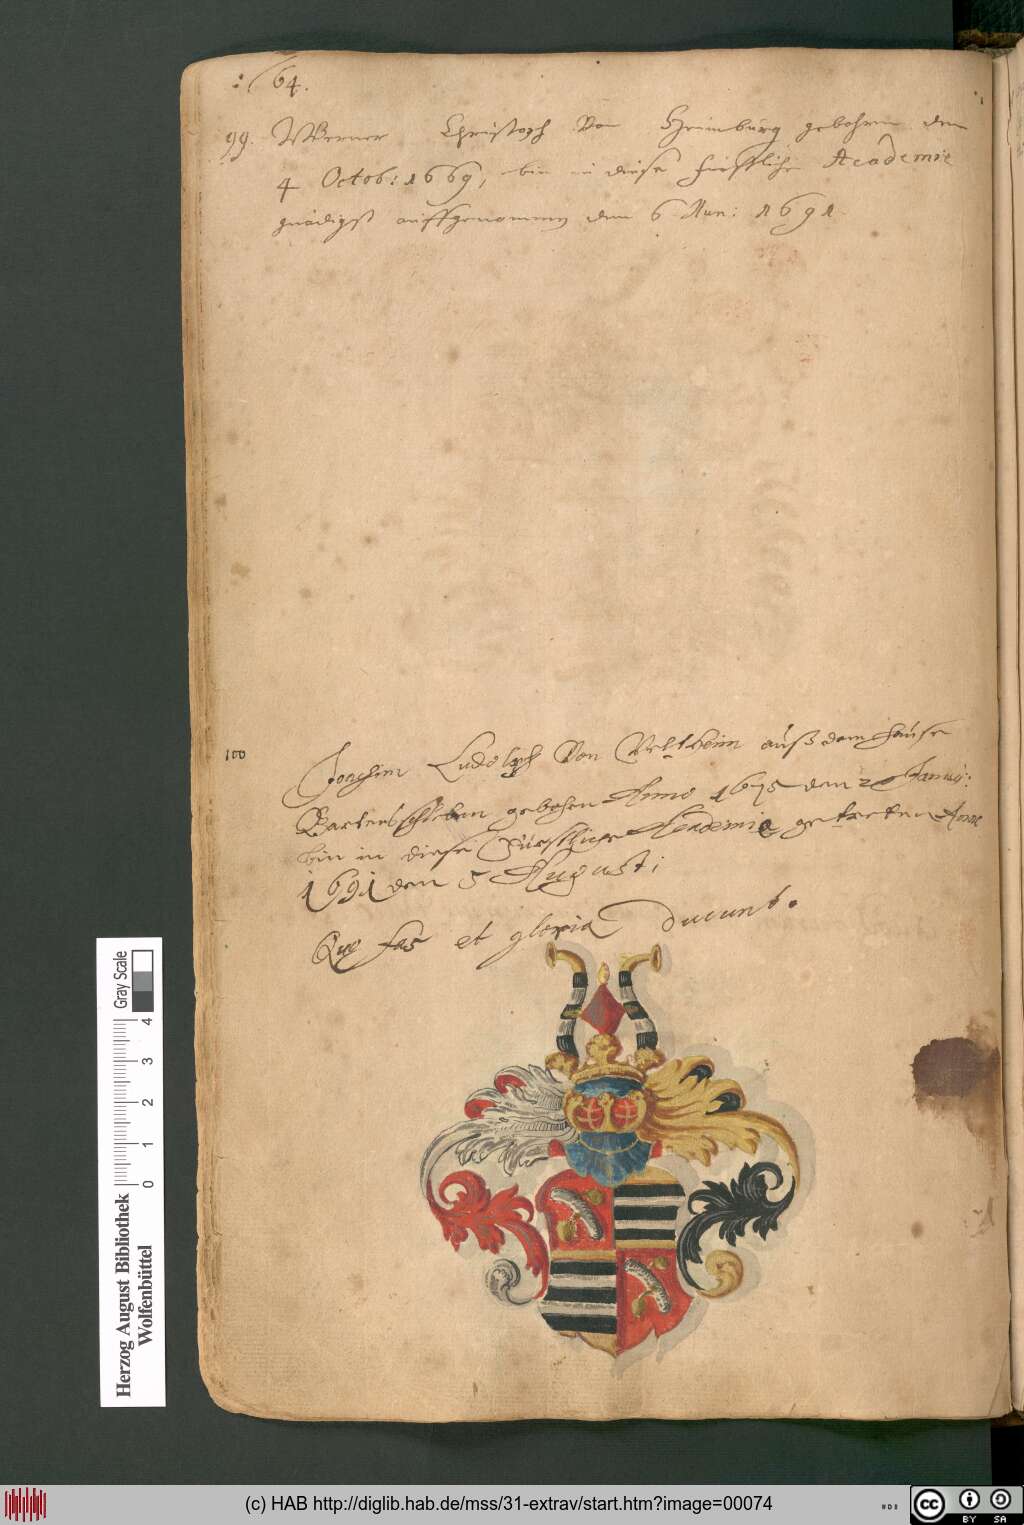 64.
99. Werner Christoph Von Heimburg gebohren den
4 Octob: 1669, bin in diese fürstliche Academie
gnädigst auffgenommen den 6 Mau: 1691
100
Joachim Ludolph Von Veltheim auß dem hause
Bartensleben gebohren Anno 1675 den 20 Januij:
bin in diese Fürstliche Academie getretten Anno
1691 den 5 Augusti
Quo fas et gloria Ducunt.
Herzog August Bibliothek
Wolfenbüttel
Gray Scale
0 1 2 3 4
(c) HAB http://diglib.hab.de/mss/31-extrav/start.htm?image=00074
cc BY SA